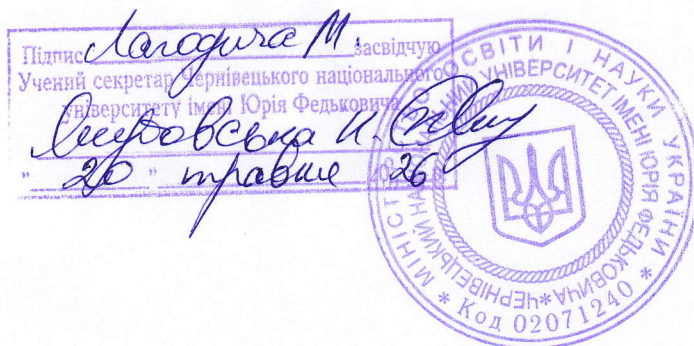 Підпис Лагодича М. засвідчую
Учений секретар Чернівецького національного
університету імені Юрія Федьковича
Н.
" 20 " травня 2026
МІНІСТЕРСТВО ОСВІТИ І НАУКИ УКРАЇНИ
ЧЕРНІВЕЦЬКИЙ НАЦІОНАЛЬНИЙ УНІВЕРСИТЕТ ІМЕНІ ЮРІЯ ФЕДЬКОВИЧА
* Код 02071240 *